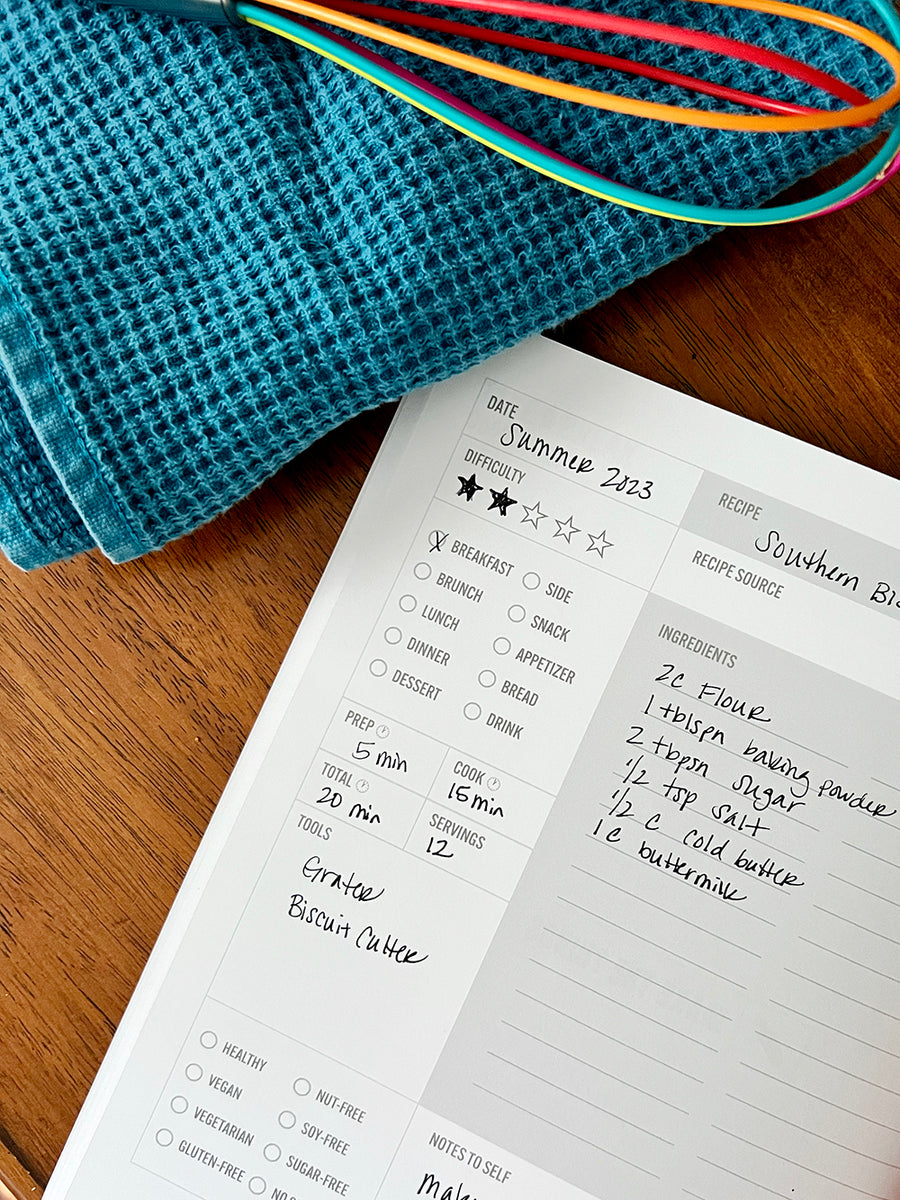 DATE
Summer 2023
DIFFICULTY
BREAKFAST
BRUNCH
LUNCH
DINNER
DESSERT
SIDE
SNACK
APPETIZER
BREAD
DRINK
PREP
5 min
COOK
15 min
TOTAL
20 min
SERVINGS
12
TOOLS
Grater
Biscuit Cutter
HEALTHY
VEGAN
VEGETARIAN
GLUTEN-FREE
NUT-FREE
SOY-FREE
SUGAR-FREE
RECIPE
Southern
RECIPE SOURCE
INGREDIENTS
2c Flour
1 tblspn baking powder
2 tbpsn sugar
1/2 tsp salt
1/2 c cold butter
1c buttermilk
NOTES TO SELF